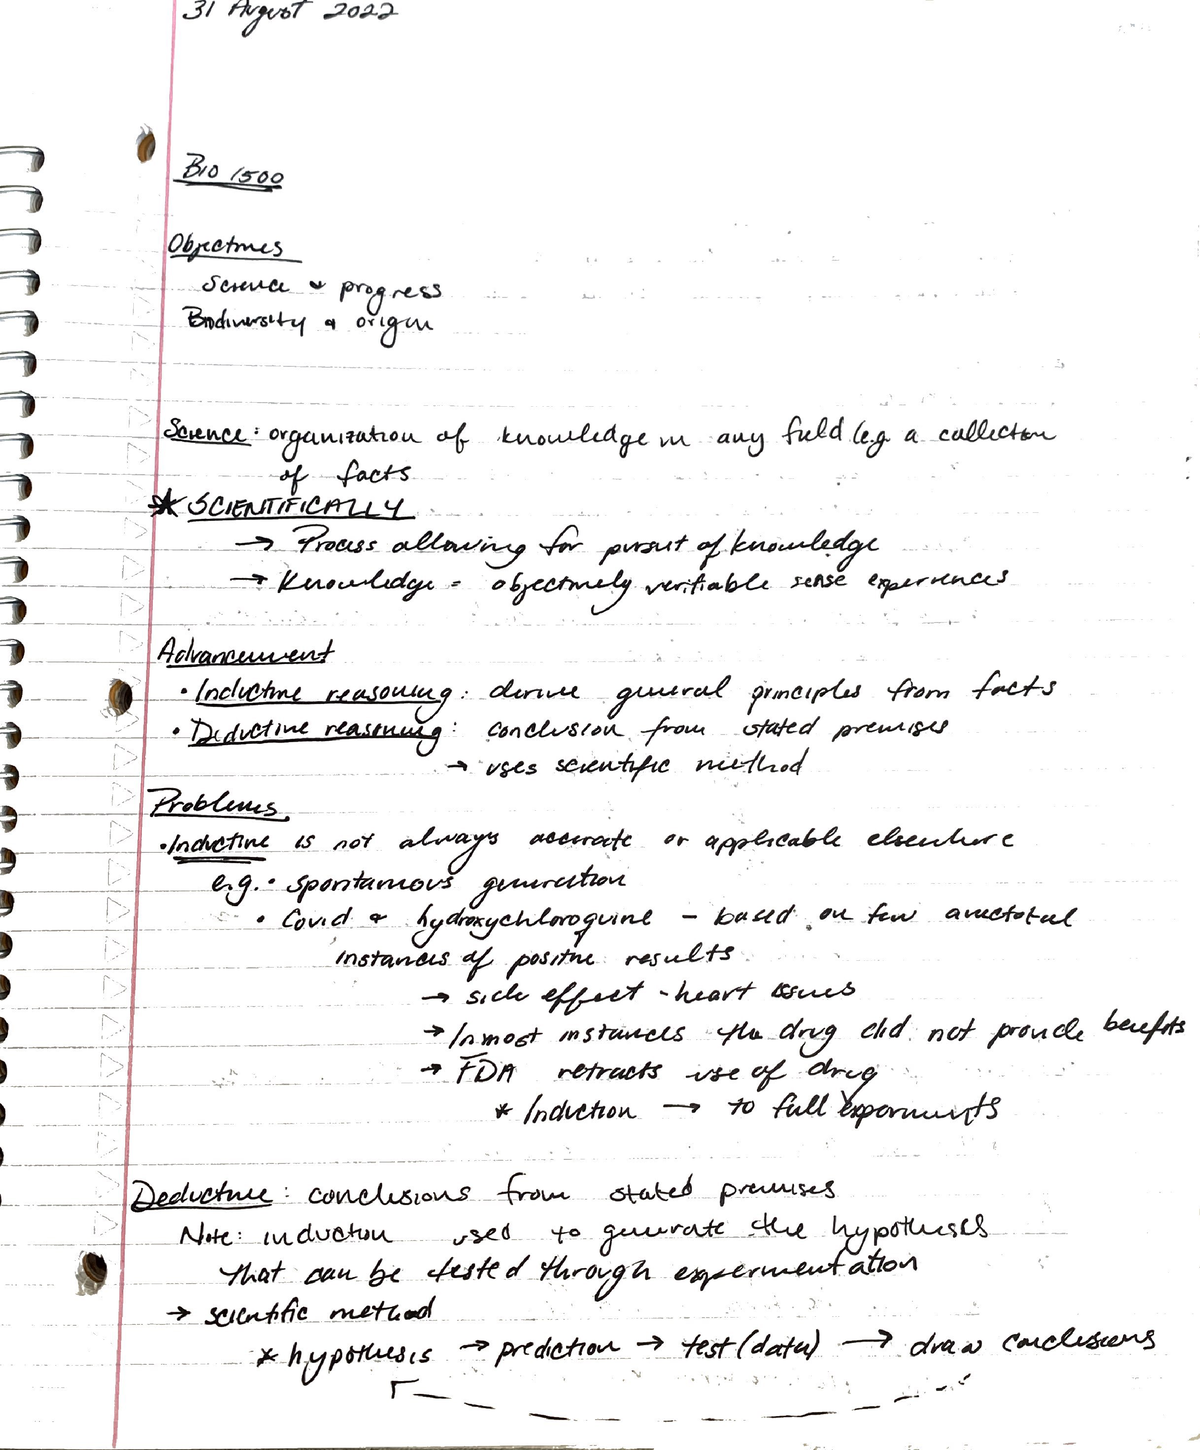 31 August 2022
Bio 1500
Objectives
Science & progress
Biodiversity & origin
Science: organization of knowledge in any field (e.g. a collection
of facts
* SCIENTIFICALLY
→ Process allowing for pursuit of knowledge
→ Knowledge = objectively verifiable sense experiences
Advancement
• Inductive reasoning: derive general principles from facts
• Deductive reasoning: conclusion from stated premises
→ uses scientific method
Problems
• Inductive is not always accurate or applicable elsewhere
e.g. • spontaneous generation
• Covid & hydroxychloroquine - based on few anectotal
instances of positive results
→ side effect - heart issues
→ In most instances the drug did not provide benefits
→ FDA retracts use of drug
* Induction → to full experiments
Deductive: conclusions from stated premises
Note: induction used to generate the hypotheses
that can be tested through experimentation
→ scientific method
* hypothesis → prediction → test (data) → draw conclusions